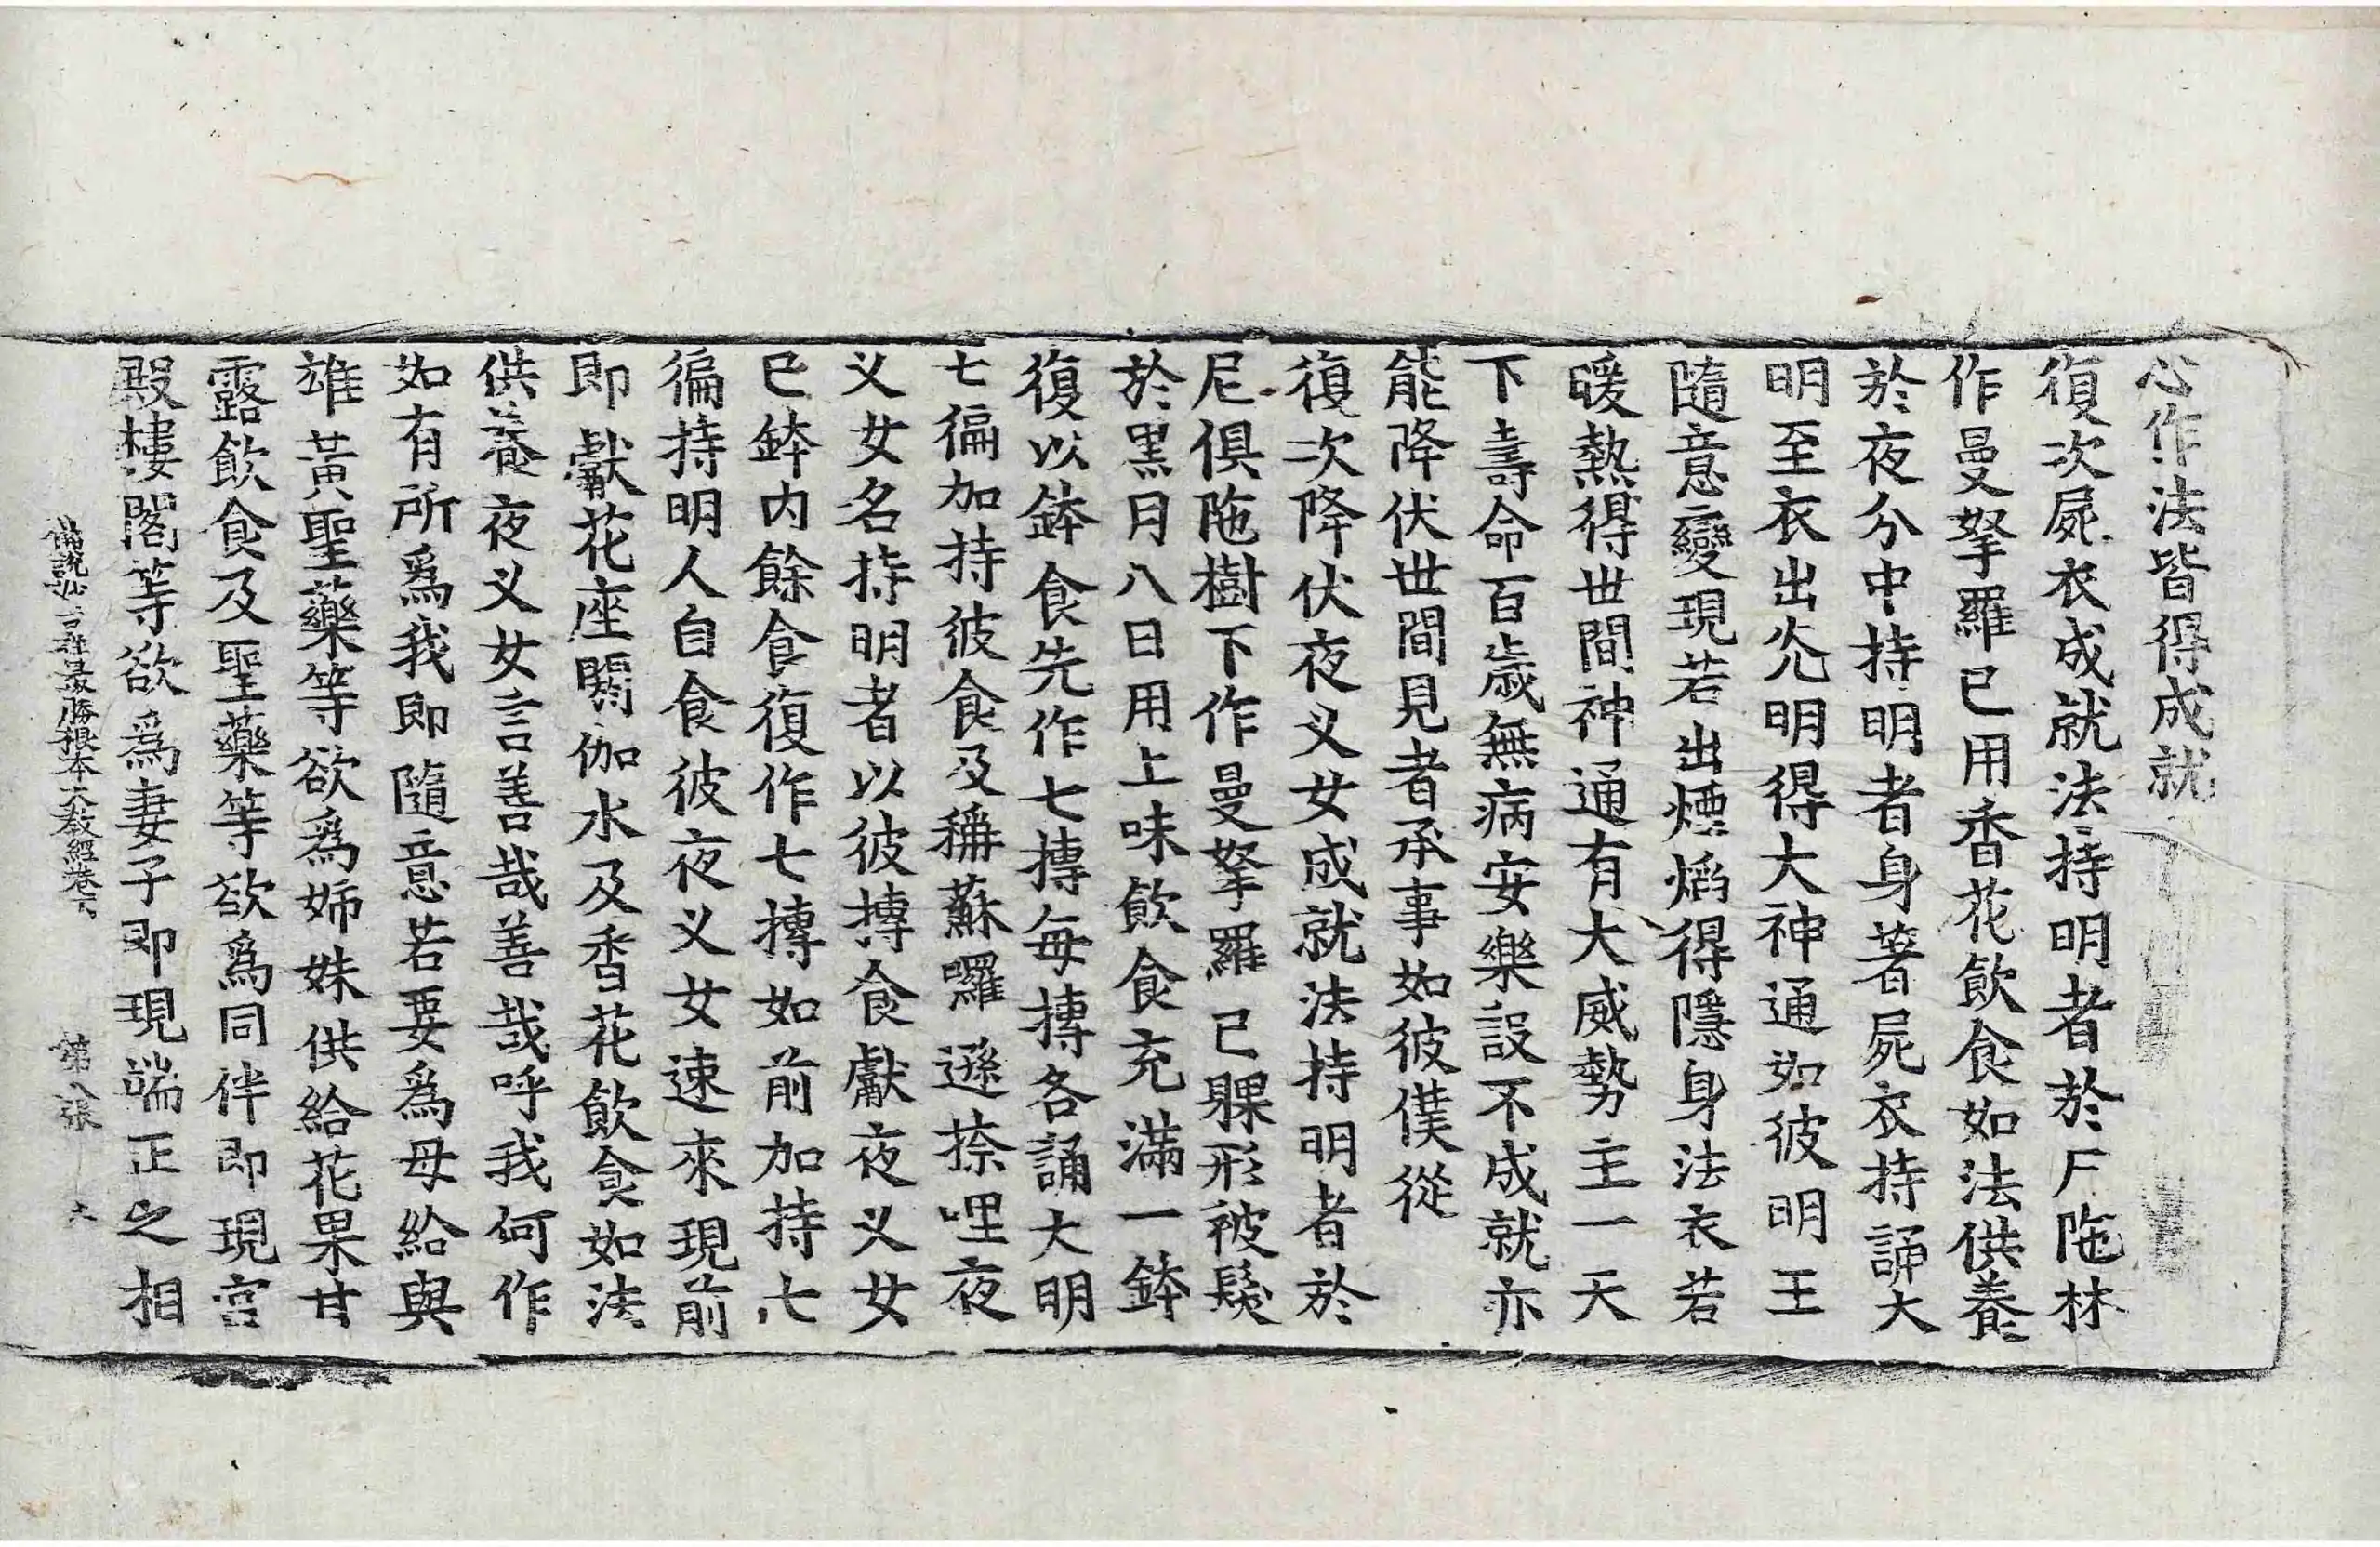 心作法皆得成就
復次屍衣成就法持明者於尸陁林
作曼拏羅已用香花飲食如法供養
於夜分中持明者身著屍衣持誦大
明至衣出光明得大神通如彼明王
隨意變現若出煙焰得隱身法衣若
暖熱得世間神通有大威勢主一天
下壽命百歲無病安樂設不成就亦
能降伏世間見者承事如彼僕從
復次降伏夜叉女成就法持明者於
尼俱陁樹下作曼拏羅已躶形被髮
於黑月八日用上味飲食充滿一鉢
復以鉢食先作七摶每摶各誦大明
七徧加持彼食及稱蘇囉遜捺哩夜
叉女名持明者以彼摶食獻夜叉女
已鉢內餘食復作七摶如前加持七
徧持明人自食彼夜叉女速來現前
即獻花座閼伽水及香花飲食如法
供養夜叉女言善哉善哉呼我何作
如有所爲我即隨意若要爲母給與
雄黃聖藥等欲爲姉妹供給花果甘
露飲食及聖藥等欲爲同伴即現宮
殿樓閣等欲爲妻子即現端正之相
佛說妙吉祥最勝根本大教經卷下 第八張 大